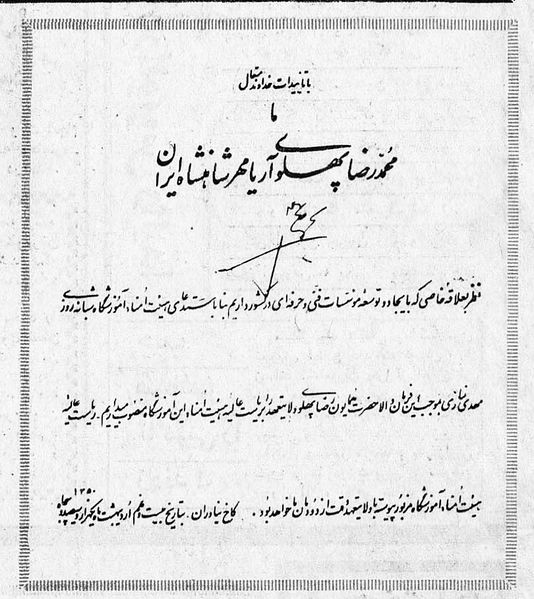 با تأییدات خداوند متعال
ما
محمدرضا پهلوی آریامهر شاهنشاه ایران
نظر بعلاقه خاصی که بایجاد و توسعه مؤسسات فنی و حرفه‌ای در کشور داریم بنا باستدعای هیئت امناء آموزشگاه شبانه روزی
مهدی نمازی بموجب این فرمان والاحضرت همایون رضا پهلوی ولایتعهد را بریاست عالیه هیئت امناء این آموزشگاه منصوب میداریم. ریاست عالیه
هیئت امناء آموزشگاه مزبور پیوسته با ولایتعهد وقت از دودمان ما خواهد بود. کاخ نیاوران. بتاریخ بیست اردیبهشت ماه یکهزار و سیصد و پنجاه ۱۳۵۰